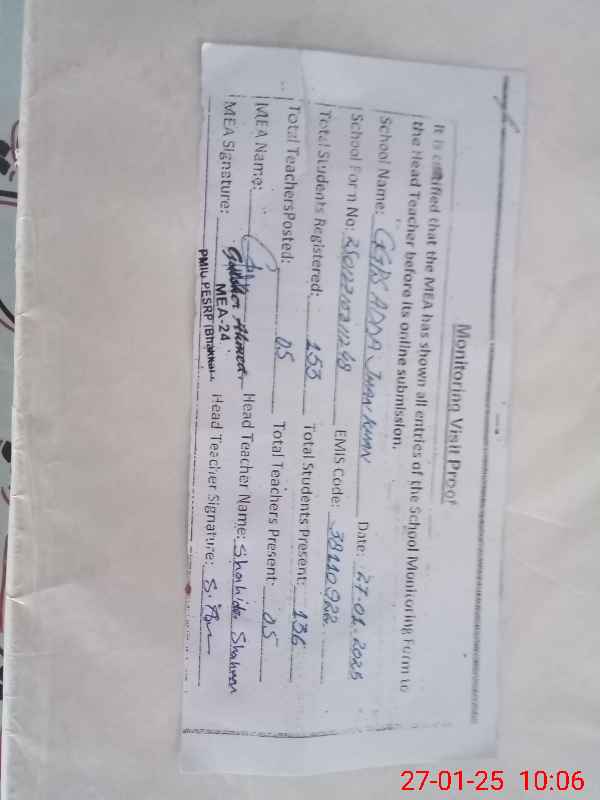 Monitoring Visit Proof
It is certified that the MEA has shown all entries of the School Monitoring Form to
the Head Teacher before its online submission.
School Name: GGPS ADDA JHAN KHAN Date: 27.01.2025
School Form No: EMIS Code:
Total Students Registered: 153 Total Students Present: 136
Total TeachersPosted: 05 Total Teachers Present: 05
MEA Name: Head Teacher Name: Shahida
MEA Signature: Head Teacher Signature:
MEA-24
PMIU PESRP (Bhakkar)
27-01-25 10:06